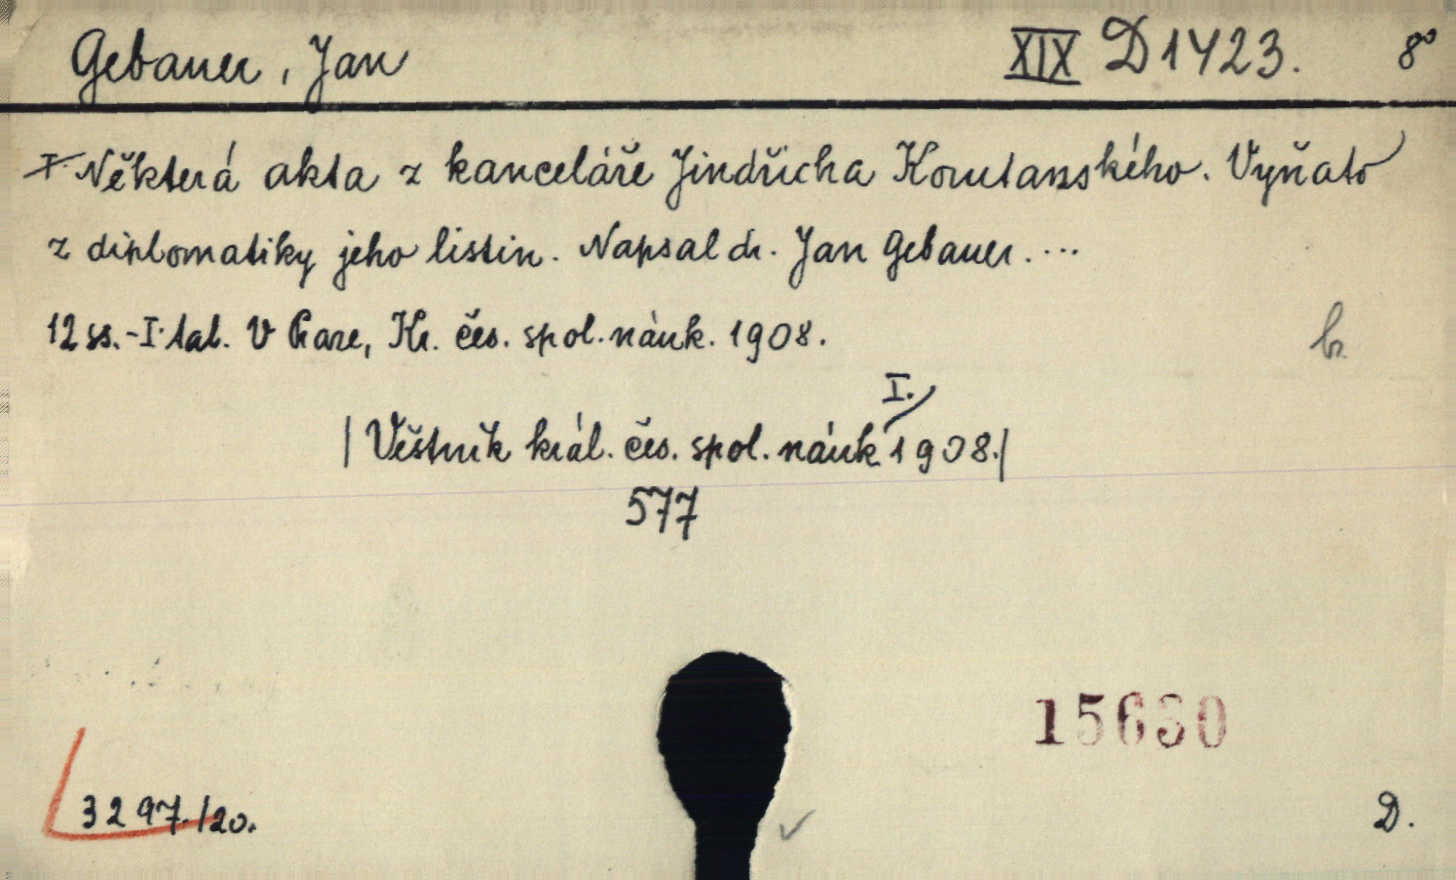 Gebauer, Jan XIX D 1423. 8°
I. Některá akta z kanceláře Jindřicha Korutanského. Vyňato
z diplomatiky jeho listin. Napsal dr. Jan Gebauer. ...
12 ss.-I tab. V Praze, Kr. čes. spol. náuk. 1908.
b.
I.
|Věstník král. čes. spol. náuk 1908.|
577
15630
3297./20.
D.